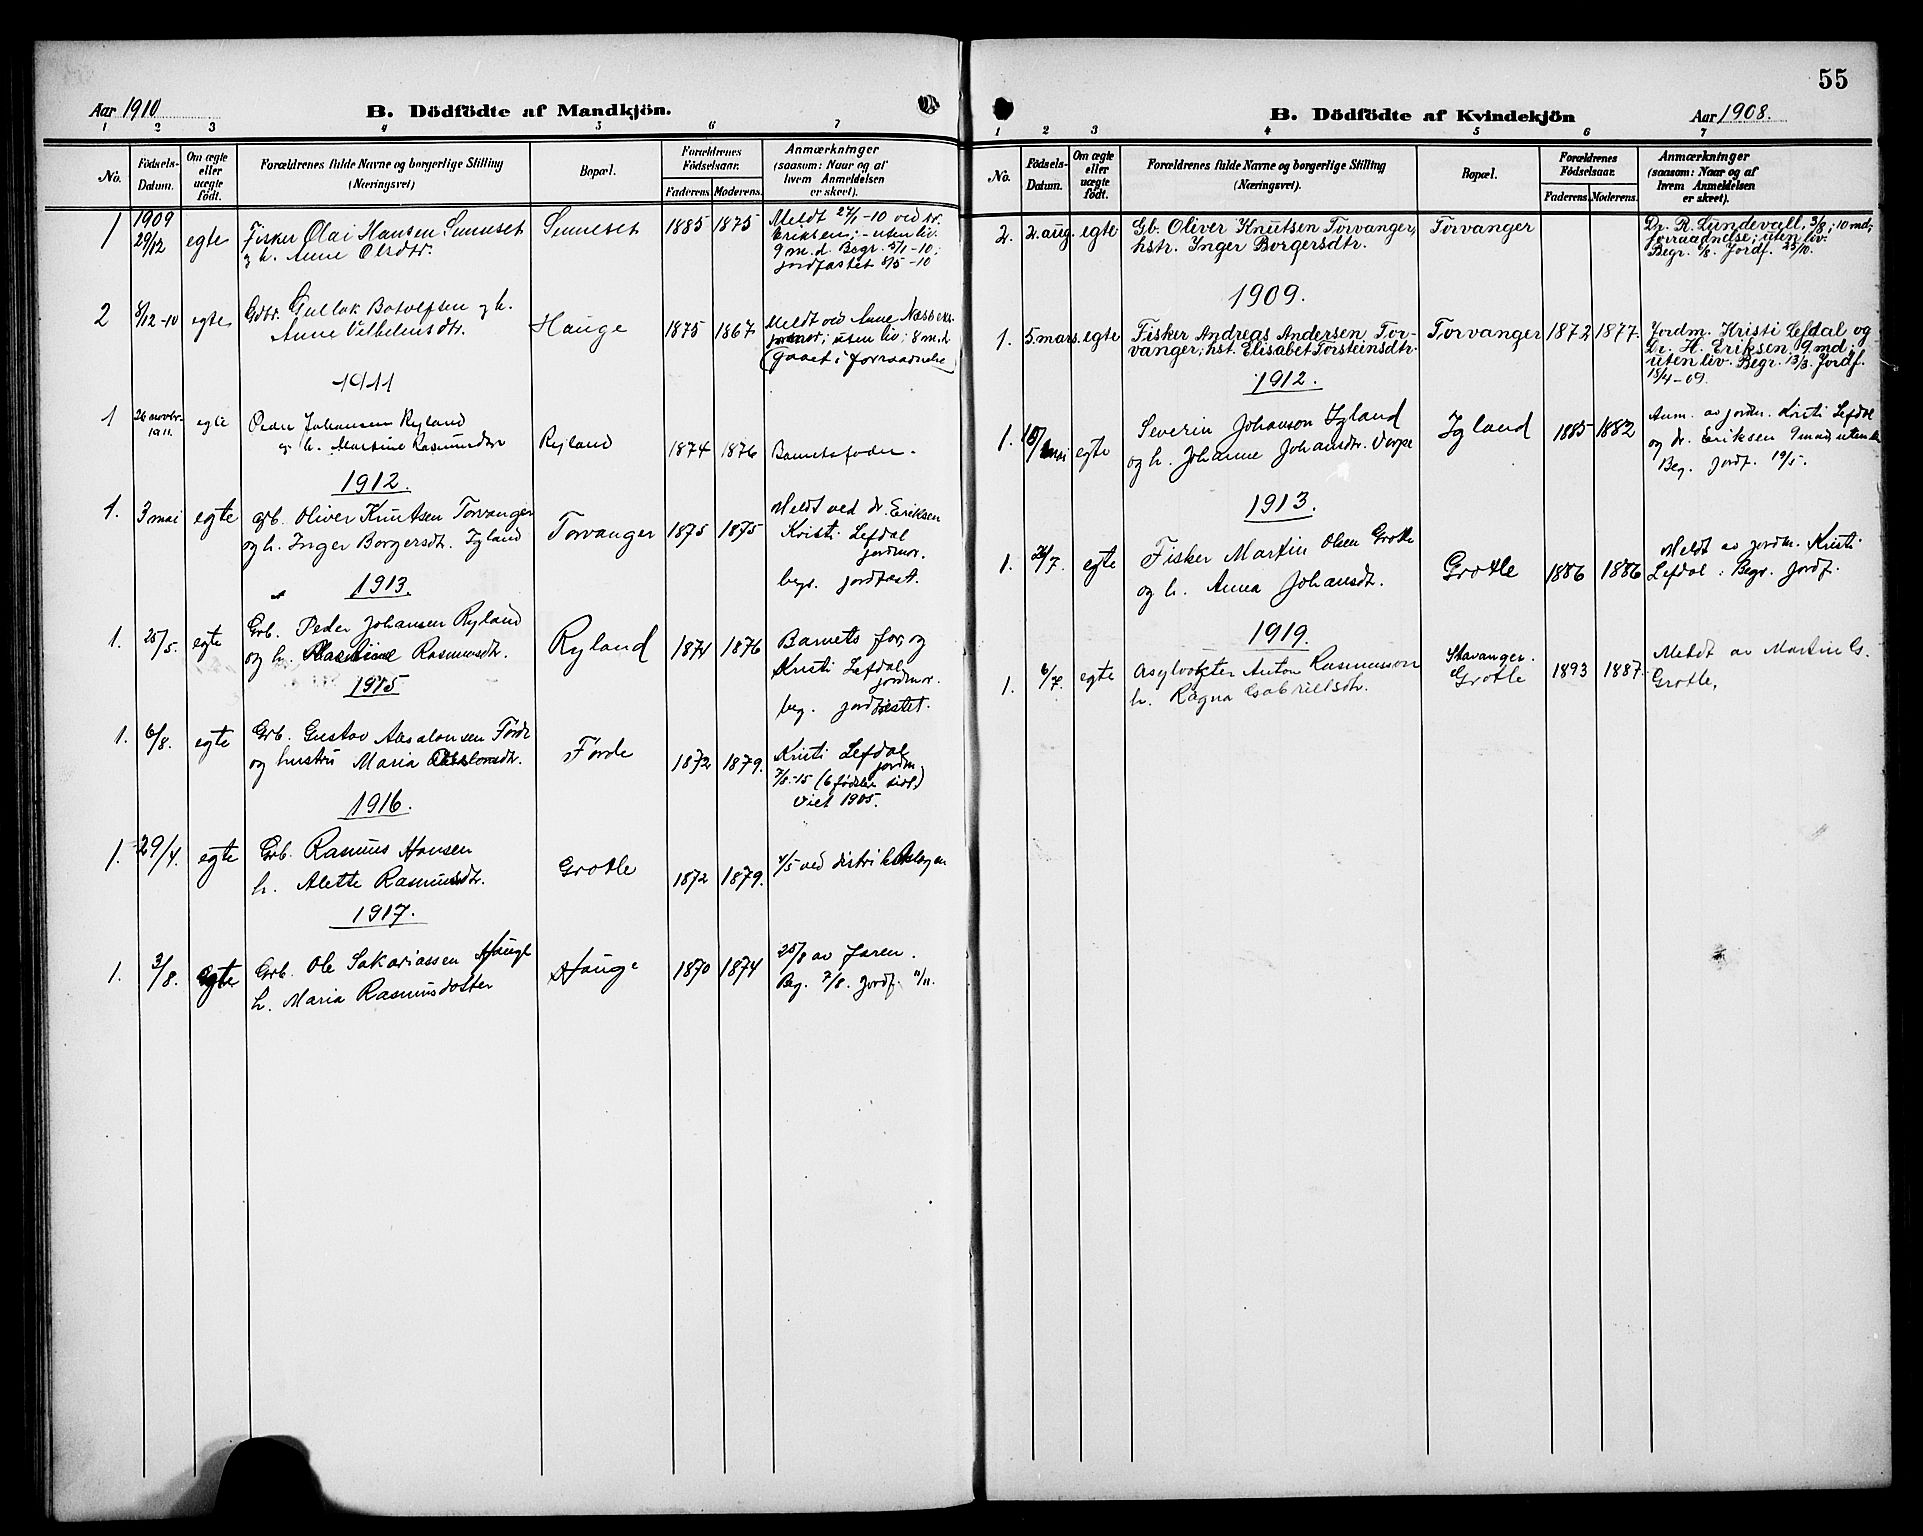 Aar 1910
B. Dödfödte af Mandkjön.
1 2 3 4 5 6 7
No.
Födsels-Datum.
Om ægte eller uægte födt.
Forældrenes fulde Navne og borgerlige Stilling
(Næringsvei)
Bopæl.
Forældrenes Födselsaar.
Faderens. Moderens.
Anmærkninger
(saasom: Naar og af
hvem Anmeldelsen
er skeet).
1 1909 29/12 egte Fisker Olai Hansen Sumeset Sumeset 1885 1875 Meldt 27/1-10 ved dr.
h. Anne Olsdtr. Eriksen; - uten liv.
9 m.d. Begr. 5/1-10;
jordfæstet 8/5-10
2 8/12-10 egte Gdbr. Gullak Botolfsen og h. Hauge 1875 1867 Meldt ved Anne
Anne Vilhelmsdtr. jormor; uten liv; 8 m.d.
(gaaet i forraadnelse)
1911
1 26 novbr. 1911. egte Peder Johansen Ryland
og h. Martine Rasmusdtr Ryland 1874 1876 Barnets fader.
1912.
1. 3 mai egte Grb. Oliver Knutsen Torvanger Torvanger 1875 1875 Meldt ved dr. Eriksen
og h. Inger Borgersdtr. Igland Kristi Lefdal
jordmor.
begr. jordfæst.
1913.
1. 25/5. egte Grb. Peder Johansen Ryland Ryland 1874 1876 Barnets far og
og h. Rasmusdtr. Kristi Lefdal
jordmor.
beg. jordfæstet.
1915
1. 6/8. egte Grb. Gustav Absalonsen Förde Förde 1872 1879. Kristi Lefdal
og hustru Maria jordm.
7/8-15 (6 födsler tidl.)
Viet 1905.
1916.
1. 29/4. egte Grb. Rasmus Hansen Grotle 1872 1879. 4/5 ved distriktslægen
h. Alette Rasmusdtr.
1917.
1. 3/8. egte Grb. Ole Sakariassen Hauge Hauge 1870 1874 25/8 av faren.
h. Maria Rasmusdotter Beg. 7/8. Jordf. 11/11.
55
B. Dödfödte af Kvindekjön
Aar 1908.
1 2 3 4 5 6 7
No.
Födsels-Datum.
Om ægte eller uægte födt.
Forældrenes fulde Navne og borgerlige Stilling
(Næringsvei).
Bopæl.
Forældrenes Födselsaar.
Faderens. Moderens.
Anmærkninger
(saasom: Naar og af
hvem Anmeldelsen
er skeet).
2. 2. aug. egte Gb. Oliver Knutsen Torvanger, Torvanger Dr. R. Lundevall, 3/8; 10 md;
hstr. Inger Borgersdtr. forraadnelse; uten liv.
Begr. 6/8. Jordf. 25/10.
1909.
1. 5. mars. egte Fisker Andreas Andersen Tor- Torvanger 1872 1877. Jordm. Kristi Lefdal og
vanger; hst. Elisabet Torsteinsdtr. Dr. H. Eriksen. 9 md;
uten liv. Begr. 13/3. Jordf.
18/4-09.
1912.
1. 18/mai egte Severin Johanson Igland Igland 1885 1882 Anm. av jordm. Kristi Lefdal
og h. Johanne Johansdtr. Vorpe og dr. Eriksen 9 mdr, uten liv
Beg. Jordf. 19/5.
1913.
1. 26/7. egte Fisker Martin Olsen Grotle Grotle 1886 1886 Meldt av jordm. Kristi
og h. Anna Johansdtr. Lefdal: Begr. Jordf.
1919.
1. 6/7. egte Asylvokter Anton Rasmusson Stavanger. 1893 1887. Meldt av Martin G.
h. Ragna Gabrielsdtr. Grotle Grotle.